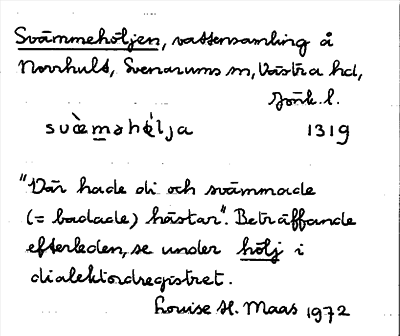 Svämmehöljen, vattensamling å
Norrhult, Svenarums sn, Västra hd,
Jönk. l.
svæ̀məhǿlja 1319
"Där hade di och svämmade
(= badade) hästar". Beträffande
efterleden, se under hölj i
dialektordregistret.
Louise H. Maas 1972